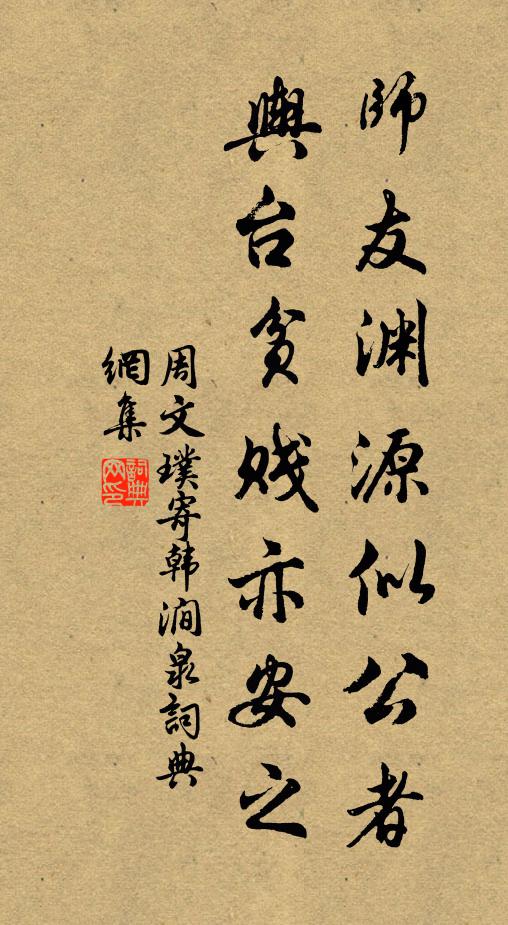 師友渊源似公者
輿台贫贱亦安之
周文璞寄韩澗泉詞典
網集
詞典
网印